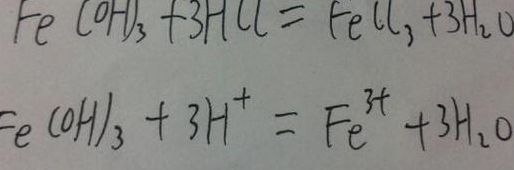 Fe(OH)₃+3HCl=FeCl₃+3H₂O
Fe(OH)₃+3H⁺=Fe³⁺+3H₂O